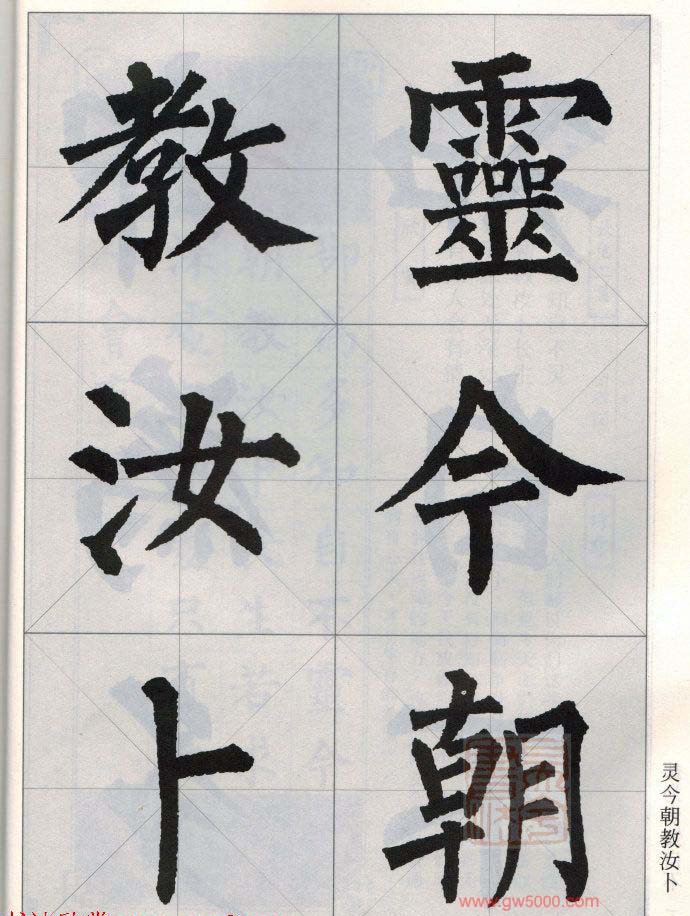 靈今朝
教汝卜
灵今朝教汝卜
www.gw5000.com